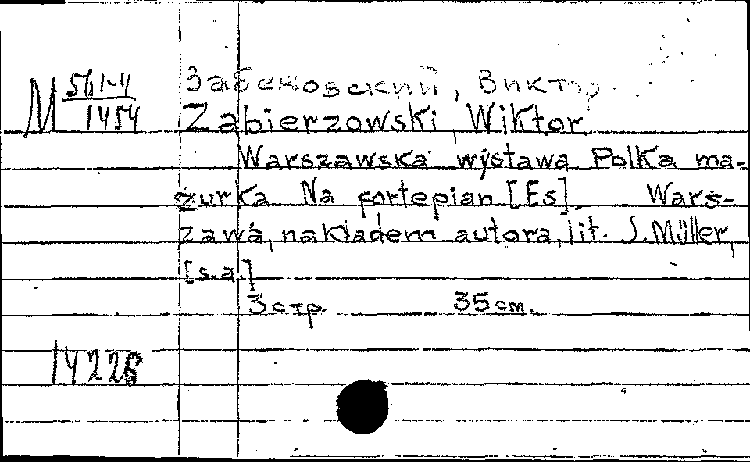 М 561-4/1454
Забежовский, Виктор
Zabierzowski Wiktor
Warszawska wystawa Polka ma-
zurka Na fortepian [Es]. Wars-
zawa, nakładem autora, lit. J. Müller,
[s.a.]
3 стр. 35 см.
14226